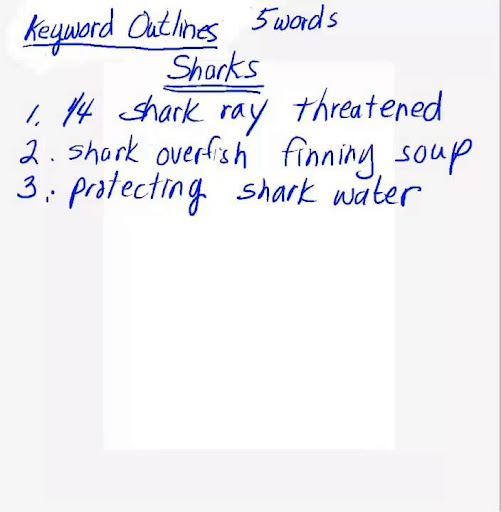 Keyword Outlines 5 words
Sharks
1. 1/4 shark ray threatened
2. shark overfish finning soup
3. protecting shark water